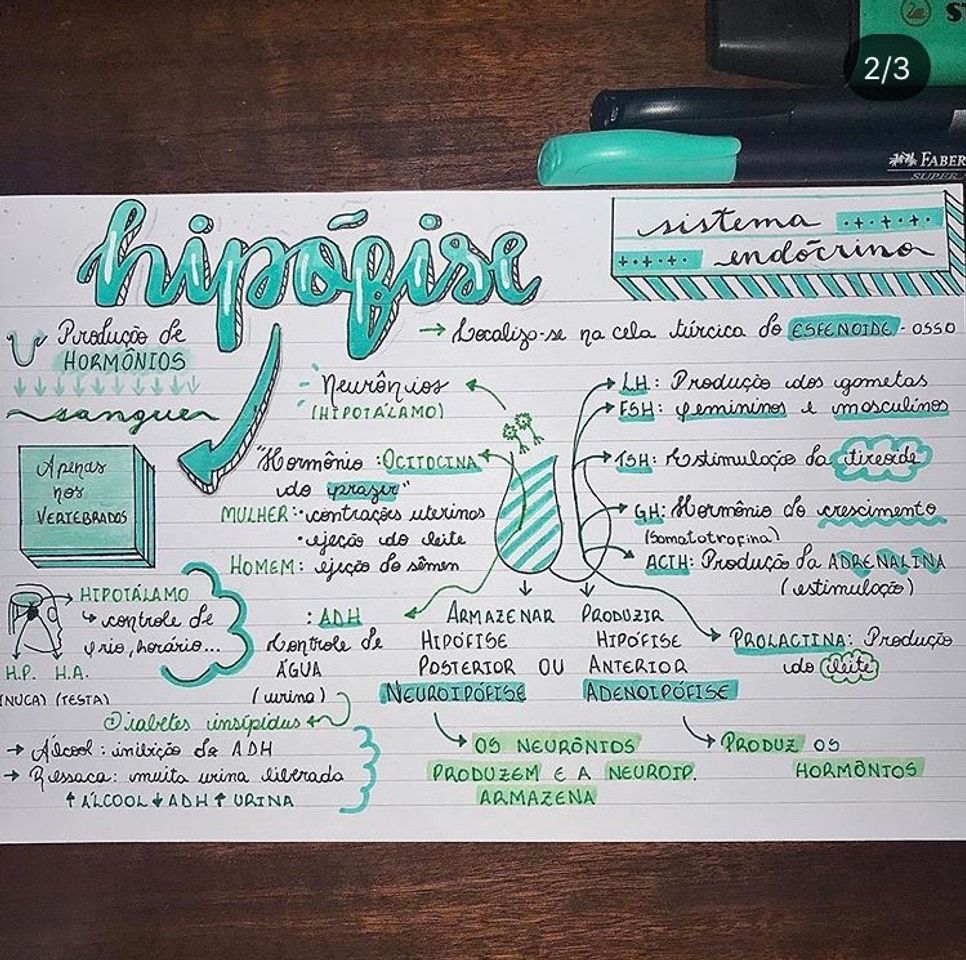 2/3
ST
FABER
SUPER
hipófise
sistema
endócrino
Produção de
HORMÔNIOS
sangue
→ Localiza-se na cela túrcica do ESFENOIDE - OSSO
Apenas
nos
VERTEBRADOS
Neurônios
(HIPOTÁLAMO)
"Hormônio :OCITOCINA
do prazer"
MULHER: • contrações uterinas
• ejeção do leite
HOMEM: ejeção do sêmen
LH: Produção dos gametas
FSH: femininos e masculinos
TSH: Estimulação da tireoide
GH: Hormônio do crescimento
(Somatotrofina)
ACTH: Produção da ADRENALINA
(estimulação)
PROLACTINA: Produção
do leite
HIPOTÁLAMO
↳ controle de
frio, horário...
H.P. H.A.
(NUCA) (TESTA)
: ADH
Controle de
ÁGUA
(urina)
Diabetes insípidus
→ Álcool: inibição de ADH
→ Ressaca: muita urina liberada
↑ ÁLCOOL ↓ ADH ↑ URINA
ARMAZENAR PRODUZIR
HIPÓFISE HIPÓFISE
POSTERIOR OU ANTERIOR
NEUROIPÓFISE ADENOIPÓFISE
OS NEURÔNIOS
PRODUZEM E A NEUROIP.
ARMAZENA
PRODUZ OS
HORMÔNIOS